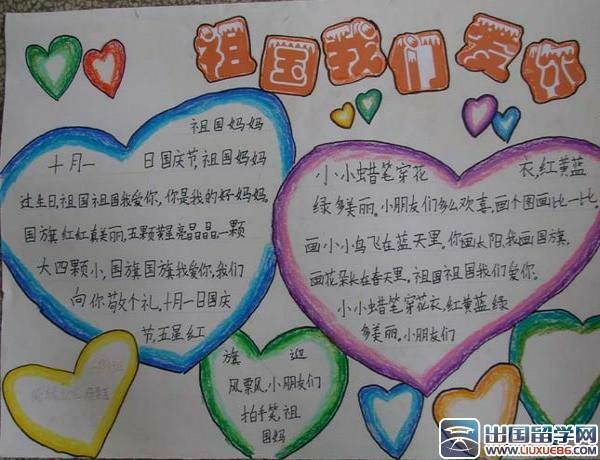 祖国我们爱你
祖国妈妈
十月一 日国庆节,祖国妈妈
过生日,祖国祖国我爱你,你是我的好妈妈
国旗红红真美丽,五颗黄星亮晶晶,一颗
大四颗小,国旗国旗我爱你,我们
向你敬个礼。十月一日国庆
节,五星红
小小蜡笔穿花 衣,红黄蓝
绿多美丽。小朋友们多么欢喜,画个图画比一比。
画小小鸟飞在蓝天里。你画太阳,我画国旗。
画花朵长在春天里,祖国祖国我们爱你。
小小蜡笔穿花衣,红黄蓝绿
多美丽。小朋友们
旗 迎
风飘,小朋友们
拍手笑,祖
国妈
出国留学网
WWW.LIUXUE86.COM